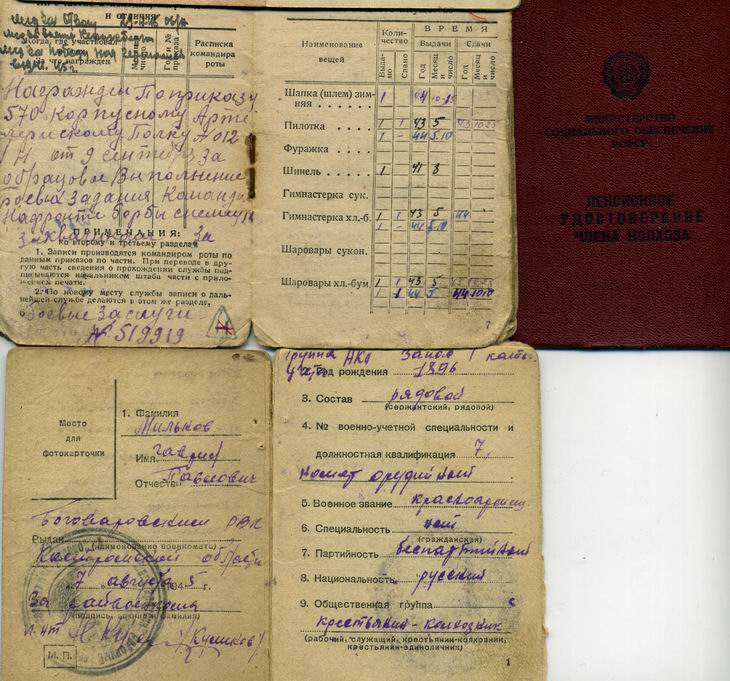 и отличия
мед за Отвагу
мед за победу над Германией
Когда, где участвовал
чем награжден
Месяц и число
Год и № приказа
Расписка
командира
роты
Награжден По приказу
570 Корпусному Арти
лерискому Полку № 012
/Н от 9 сентября За
образцовое Выполнение
боевых Задания Командо
На фронте борбы с немецк
ПРИМЕЧАНИЯ: За
ко второму и третьему разделам
1. Записи производятся командиром роты по
данным приказов по части. При переводе в дру-
гую часть сведения о прохождении службы под-
писываются начальником штаба части с прило-
жением печати.
2. По новому месту службы записи о даль-
нейшей службе делаются в этом же разделе.
боевые Заслуги
№ 519919
Наименование
вещей
Количество
Выдано
Сдано
ВРЕМЯ
Выдачи
Сдачи
Год
Месяц и число
Год
Месяц и число
Шапка (шлем) зим-
няя 1
Пилотка 1 1 43 5 43 10.23
1 - 44 5.10
Фуражка
Шинель 1 41 8
Гимнастерка сук.
Гимнастерка хл.-б. 1 1 43 5 44
1 - 44 5.10
Шаровары сукон.
Шаровары хл.-бум. 1 1 43 5
1 1 44 5 44 10.10
7
МИНИСТЕРСТВО
СОЦИАЛЬНОГО ОБЕСПЕЧЕНИЯ
РСФСР
ПЕНСИОННОЕ
УДОСТОВЕРЕНИЕ
ЧЛЕНА КОЛХОЗА
Место
для
фотокарточки
1. Фамилия
Мильков
Имя Гаврил
Отчество Павлович
Боговаровским РВК
Выдан
(наименование военкомата)
Костромской области
"7" августа 1945 г.
За райвоенкома
(Куликов)
М. П.
Группа
учета
2. Год рождения 1896
3. Состав рядовой
(сержантский, рядовой)
4. № военно-учетной специальности и
должностная квалификация 7,
номер орудийный
5. Военное звание красноармеец
6. Специальность нет
(гражданская)
7. Партийность беспартийный
8. Национальность русский
9. Общественная группа
крестьянин-колхозник
(рабочий, служащий, крестьянин-колхозник,
крестьянин-единоличник)
1